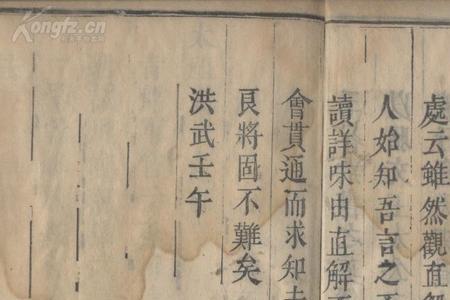 Kongfz.cn
處云雖然觀直
人始知吾言之
讀詳味由直解
會貫通而求知
良將固不難矣
洪武壬午